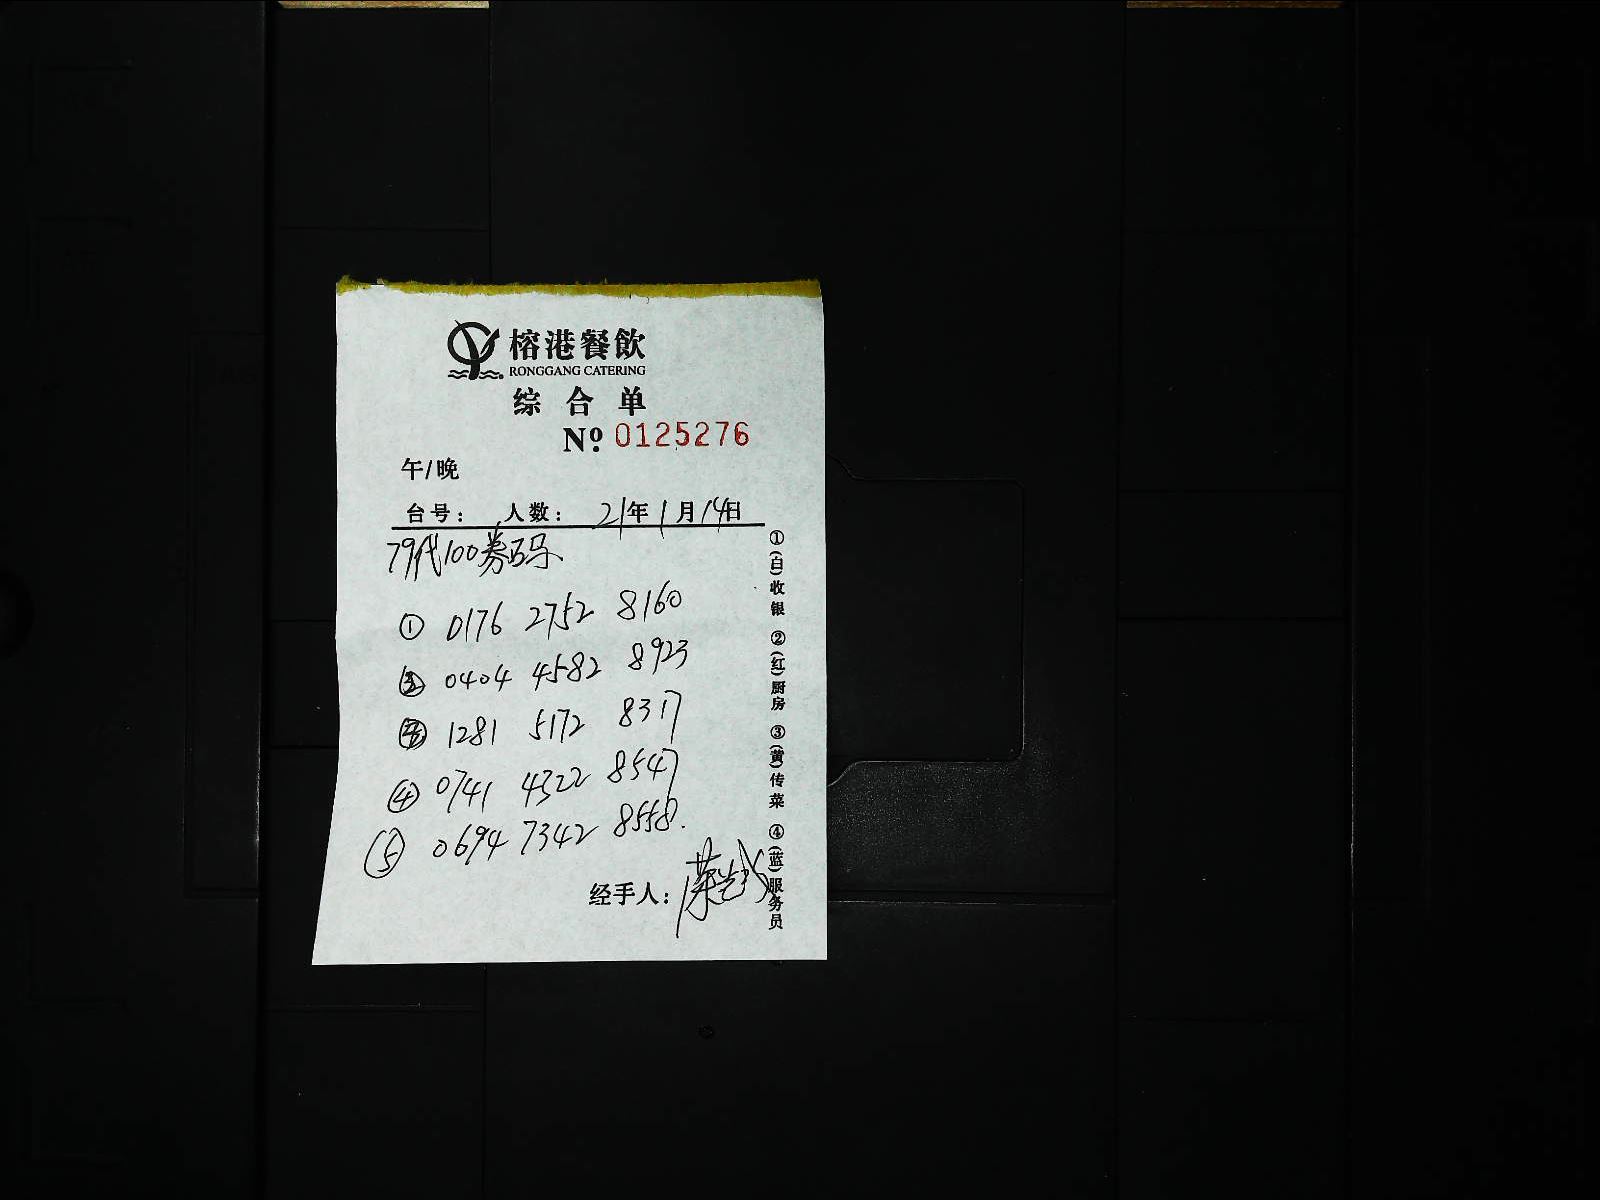 榕港餐飲
RONGGANG CATERING
综合单
Nº 0125276
午/晚
台号： 人数： 21年1月14日
79代100券码
① 0176 2752 8160
② 0404 4582 8923
③ 1281 5172 8317
④ 0741 4322 8547
⑤ 0694 7342 8558.
经手人：
①(白)收银 ②(红)厨房 ③(黄)传菜 ④(蓝)服务员